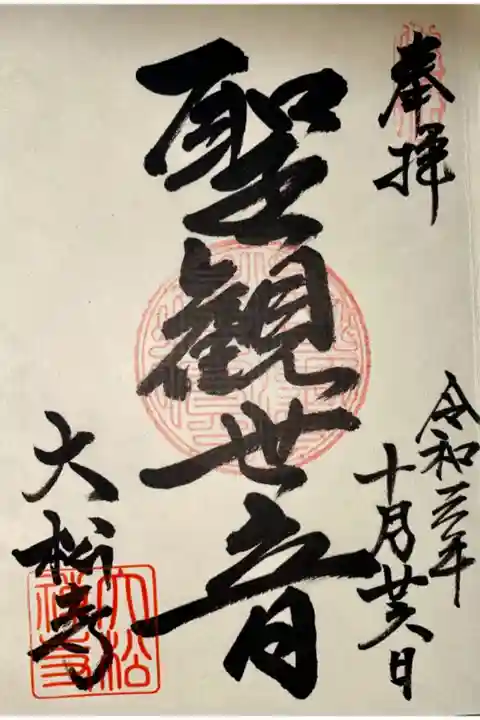 奉拝
令和三年
十月廿六日
聖観世音
大松寺